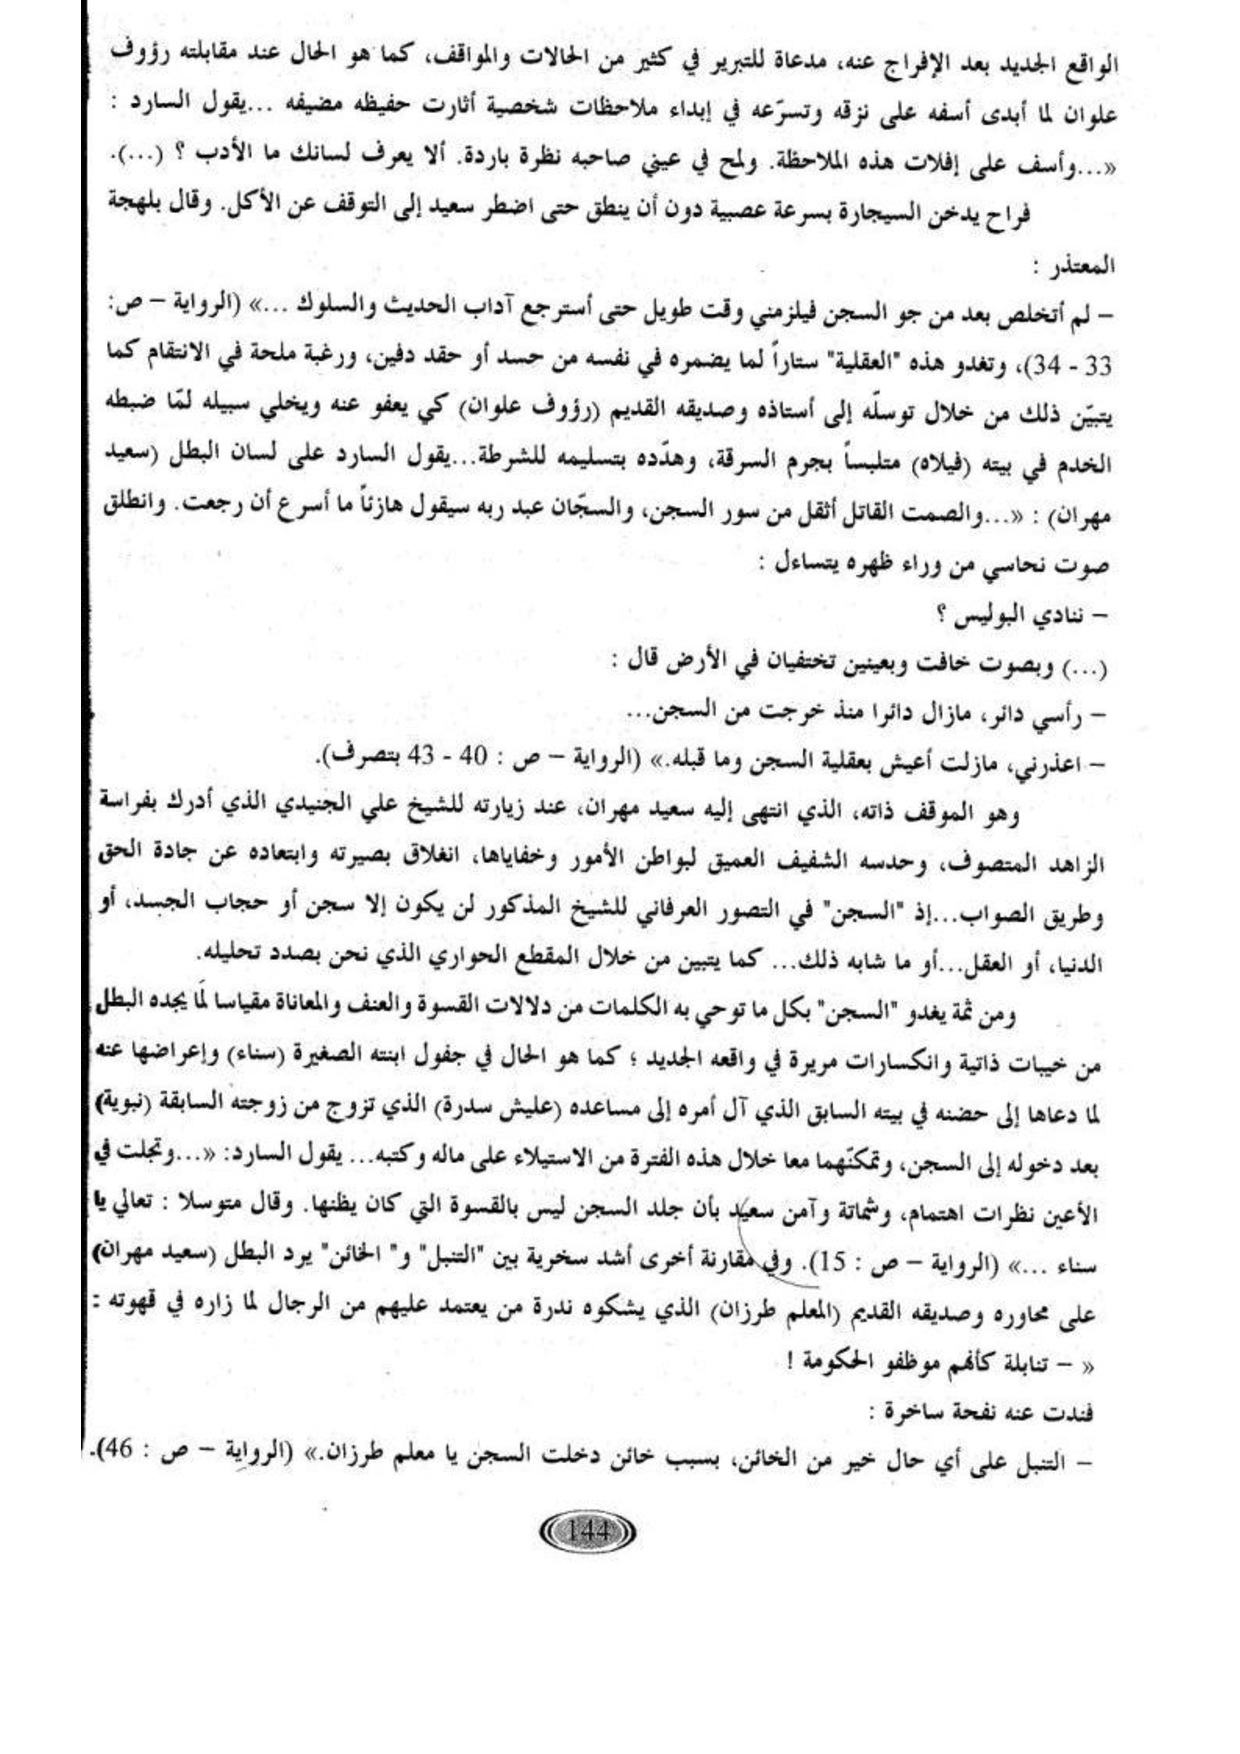 الواقع الجديد بعد الإفراج عنه، مدعاة للتبرير في كثير من الحالات والمواقف، كما هو الحال عند مقابلته رؤوف
علوان لما أبدى أسفه على نزقه وتسرّعه في إبداء ملاحظات شخصية أثارت حفيظه مضيفه ...يقول السارد :
«...وأسف على إفلات هذه الملاحظة. ولمح في عيني صاحبه نظرة باردة. ألا يعرف لسانك ما الأدب ؟ (...).
فراح يدخن السيجارة بسرعة عصبية دون أن ينطق حتى اضطر سعيد إلى التوقف عن الأكل. وقال بلهجة
المعتذر :
– لم أتخلص بعد من جو السجن فيلزمني وقت طويل حتى أسترجع آداب الحديث والسلوك ...» (الرواية – ص:
33 - 34)، وتغدو هذه "العقلية" ستاراً لما يضمره في نفسه من حسد أو حقد دفين، ورغبة ملحة في الانتقام كما
يتبيّن ذلك من خلال توسلّه إلى أستاذه وصديقه القديم (رؤوف علوان) كي يعفو عنه ويخلي سبيله لمّا ضبطه
الخدم في بيته (فيلاه) متلبساً بجرم السرقة، وهدّده بتسليمه للشرطة...يقول السارد على لسان البطل (سعيد
مهران) : «...والصمت القاتل أثقل من سور السجن، والسجّان عبد ربه سيقول هازئاً ما أسرع أن رجعت. وانطلق
صوت نحاسي من وراء ظهره يتساءل :
– ننادي البوليس ؟
(...) وبصوت خافت وبعينين تختفيان في الأرض قال :
– رأسي دائر، مازال دائرا منذ خرجت من السجن...
– اعذرني، مازلت أعيش بعقلية السجن وما قبله.» (الرواية – ص : 40 - 43 بتصرف).
وهو الموقف ذاته، الذي انتهى إليه سعيد مهران، عند زيارته للشيخ علي الجنيدي الذي أدرك بفراسة
الزاهد المتصوف، وحدسه الشفيف العميق لبواطن الأمور وخفاياها، انغلاق بصيرته وابتعاده عن جادة الحق
وطريق الصواب...إذ "السجن" في التصور العرفاني للشيخ المذكور لن يكون إلا سجن أو حجاب الجسد، أو
الدنيا، أو العقل...أو ما شابه ذلك... كما يتبين من خلال المقطع الحواري الذي نحن بصدد تحليله.
ومن ثمة يغدو "السجن" بكل ما توحي به الكلمات من دلالات القسوة والعنف والمعاناة مقياسا لما يجده البطل
من خيبات ذاتية وانكسارات مريرة في واقعه الجديد ؛ كما هو الحال في جفول ابنته الصغيرة (سناء) وإعراضها عنه
لما دعاها إلى حضنه في بيته السابق الذي آل أمره إلى مساعده (عليش سدرة) الذي تزوج من زوجته السابقة (نبوية)
بعد دخوله إلى السجن، وتمكنّهما معا خلال هذه الفترة من الاستيلاء على ماله وكتبه... يقول السارد: «...وتجلت في
الأعين نظرات اهتمام، وشماتة وآمن سعيد بأن جلد السجن ليس بالقسوة التي كان يظنها. وقال متوسلا : تعالي يا
سناء ...» (الرواية – ص : 15). وفي مقارنة أخرى أشد سخرية بين "التنبل" و" الخائن" يرد البطل (سعيد مهران)
على محاوره وصديقه القديم (المعلم طرزان) الذي يشكوه ندرة من يعتمد عليهم من الرجال لما زاره في قهوته :
« – تنابلة كأنهم موظفو الحكومة !
فندت عنه نفحة ساخرة :
– التنبل على أي حال خير من الخائن، بسبب خائن دخلت السجن يا معلم طرزان.» (الرواية – ص : 46).
144